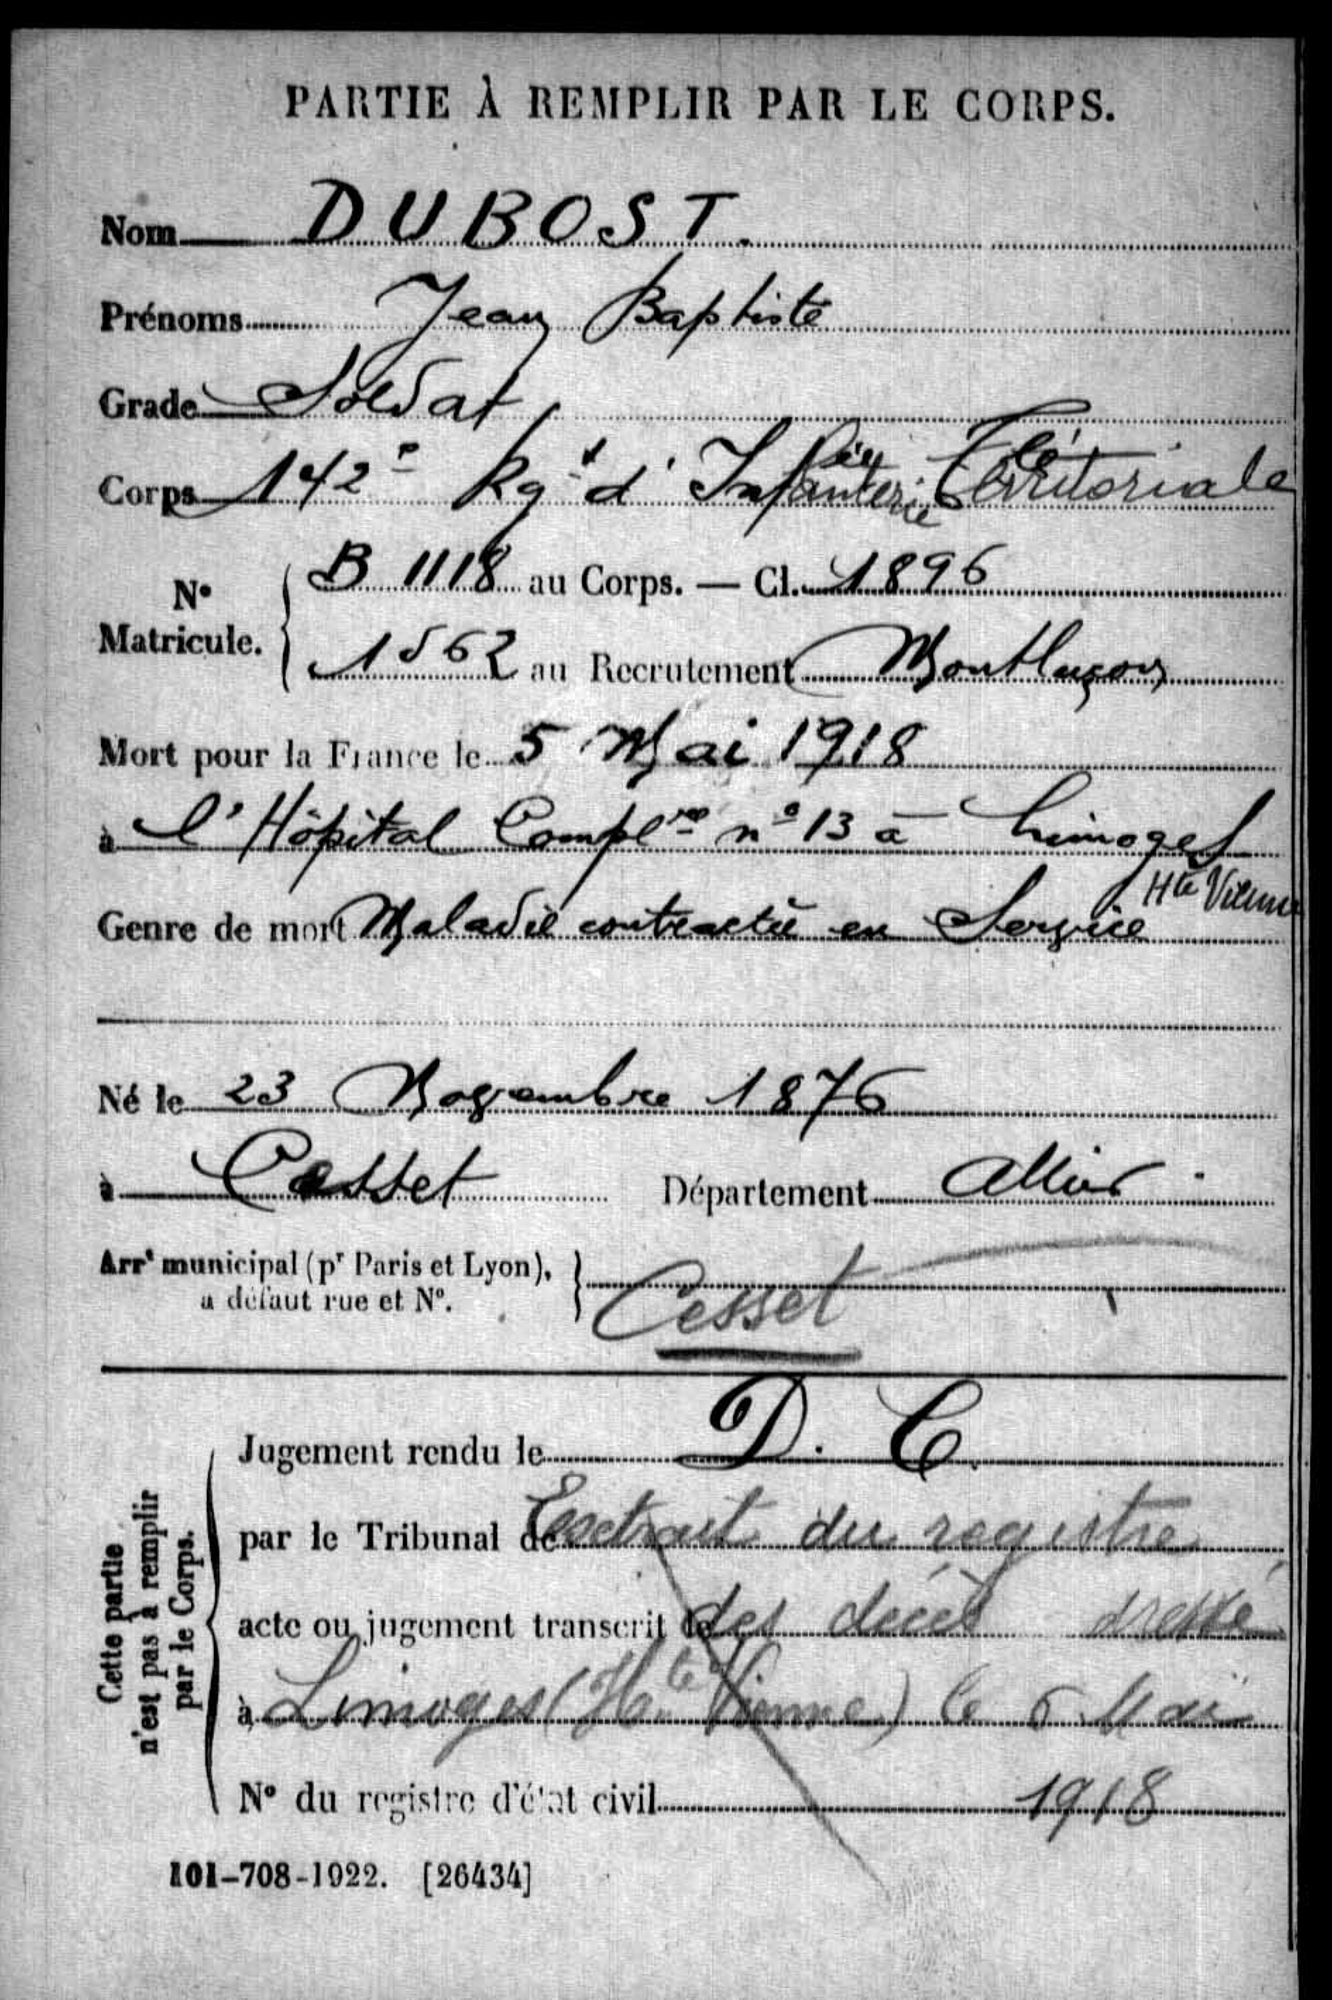 PARTIE À REMPLIR PAR LE CORPS.
Nom DUBOST.
Prénoms Jean Baptiste
Grade Soldat
Corps 142e Rgt d'Infanterie Territoriale
N° Matricule. B 1118 au Corps. — Cl. 1896
1562 au Recrutement Montluçon
Mort pour la France le 5 Mai 1918
à l'Hôpital Complre n° 13 à Limoges
Hte Vienne
Genre de mort Maladie contractée en Service
Né le 23 Novembre 1876
à Cesset Département Allier
Arrt municipal (pr Paris et Lyon),
à défaut rue et N°.
Cesset
Cette partie n'est pas à remplir par le Corps.
Jugement rendu le D. C.
par le Tribunal de Extrait du registre
acte ou jugement transcrit le des décès dressé
à Limoges (Hte Vienne) le 6 Mai
N° du registre d'état civil 1918
101-708-1922. [26434]